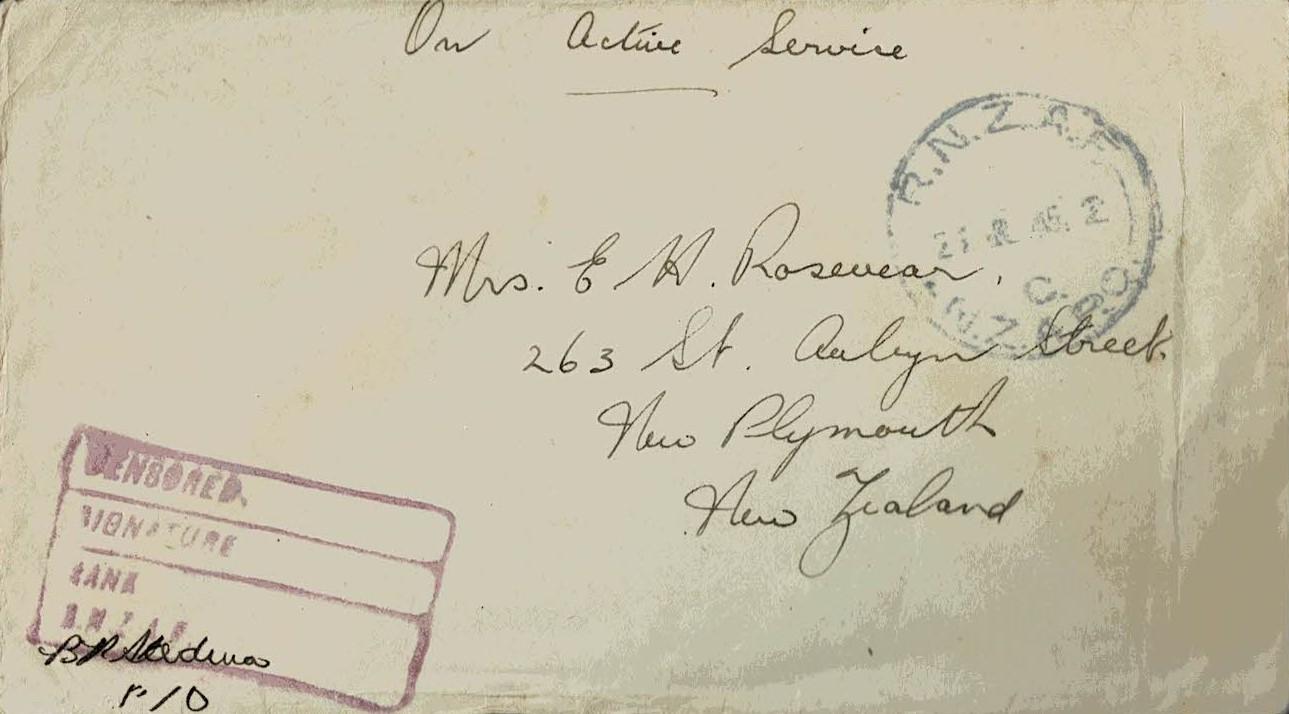 On Active Service
R.N.Z.A.F.
Mrs. E H. Rosevear,
263 St. Aubyn Street
New Plymouth
New Zealand
CENSORED.
SIGNATURE
RANK
R.N.Z.A.F.